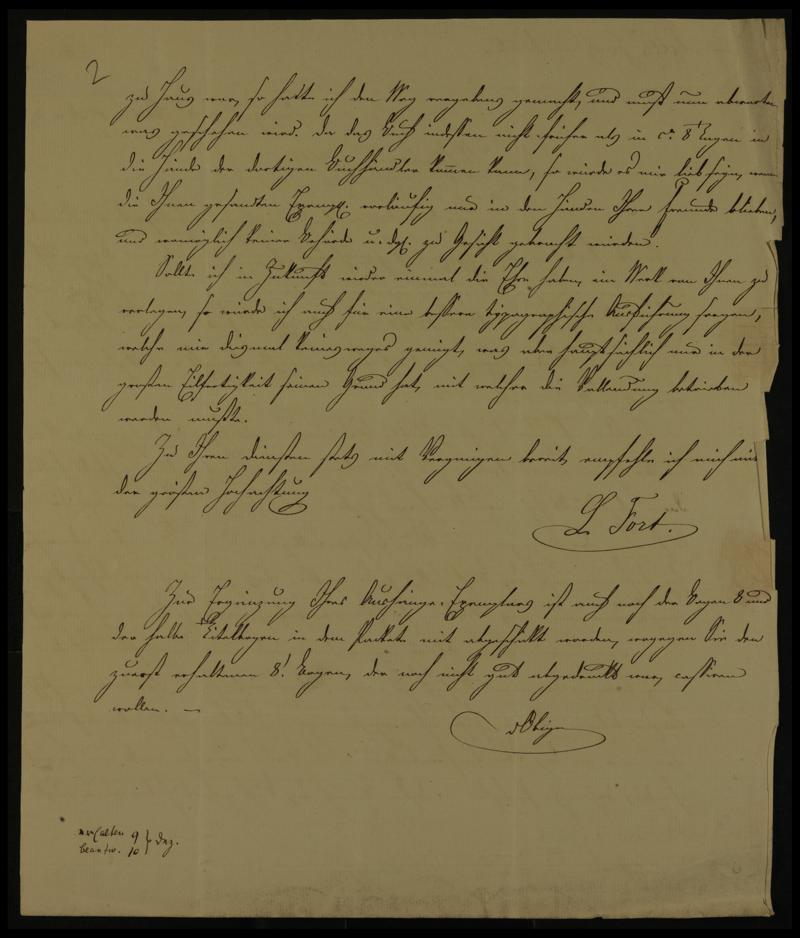 2
zu Haus war, so hatte ich den Weg vergebens gemacht, und muß nun abwarten
was geschehen wird. Da das Buch indessen nicht früher als in ca. 8 Tagen in
die Hände der dortigen Buchhändler kommen kann, so würde es mir lieb seyn, wenn
die Ihnen gesandten Exempl. vorläufig nur in den Händen Ihrer Freunde blieben,
und womöglich keiner Behörde u. dgl. zu Gesicht gebracht würden.
Sollte ich in Zukunft wieder einmal die Ehre haben, ein Werk von Ihnen zu
verlegen, so würde ich auch für eine bessere typographische Ausführung sorgen,
welche mir diesmal keinesweges genügt, was aber hauptsächlich nur in der
großen Eilfertigkeit seinen Grund hat, mit welcher die Vollendung betrieben
werden mußte.
Zu Ihren Diensten stets mit Vergnügen bereit, empfehle ich mich mit
der größten Hochachtung
L Fort.
Zur Ergänzung Ihres Aushänge-Exemplars ist auch noch der Bogen 8 und
der halbe Titelbogen in dem Packete mit abgeschickt worden, wogegen Sie den
zuerst erhaltenen 8t. Bogen, der noch nicht gut abgedruckt war, cassiren
wollen. —
d Obige
erhalten 9 } Dez.
beantw. 10